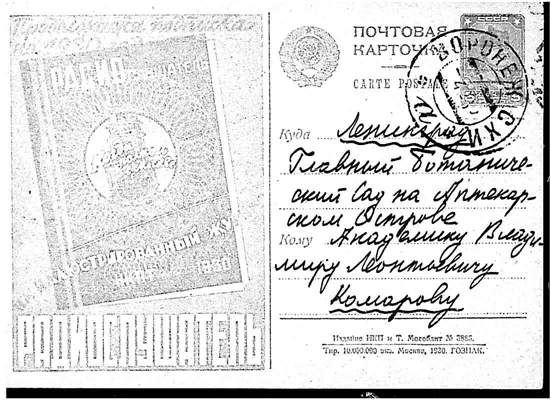 Продолжается подписка
РАДИО
ИЛЛЮСТРИРОВАННЫЙ
1931
РАДИОСЛУШАТЕЛЬ
ПОЧТОВАЯ
КАРТОЧКА
CARTE POSTALE
СССР
ВОРОНЕЖ СХИ
Куда Ленинград
Главный Ботаниче-
ский Сад на Аптекар-
ском Острове
Кому Академику Влади-
миру Леонтьевичу
Комарову
Издание НКП и Т. Мособлит № 3885.
Тир. 10.000.000 экз. Москва, 1930. ГОЗНАК.